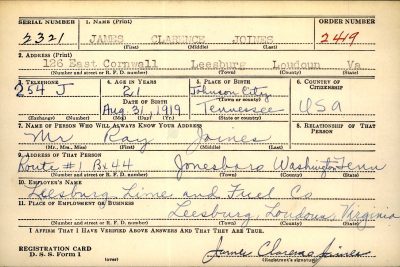 SERIAL NUMBER 1. NAME (Print) ORDER NUMBER
2321 JAMES CLARENCE JOINES 2449
(First) (Middle) (Last)
2. ADDRESS (Print)
126 East Cornwall Leesburg Loudoun Va
(Number and street or R. F. D. number) (Town) (County) (State)
3. TELEPHONE 4. AGE IN YEARS 5. PLACE OF BIRTH 6. COUNTRY OF CITIZENSHIP
254 J 21 Johnson City
DATE OF BIRTH (Town or county)
Aug. 31, 1919 Tennessee USA
(Exchange) (Number) (Mo.) (Day) (Yr.) (State or country)
7. NAME OF PERSON WHO WILL ALWAYS KNOW YOUR ADDRESS 8. RELATIONSHIP OF THAT PERSON
Mr Ray Joines
(Mr., Mrs., Miss) (First) (Middle) (Last)
9. ADDRESS OF THAT PERSON
Route #1 Jonesboro Washington Tenn
(Number and street or R. F. D. number) (Town) (County) (State)
10. EMPLOYER'S NAME
Leesburg Lime and Fuel Co
11. PLACE OF EMPLOYMENT OR BUSINESS
Leesburg, Loudoun, Virginia
(Number and street or R. F. D. number) (Town) (County) (State)
I AFFIRM THAT I HAVE VERIFIED ABOVE ANSWERS AND THAT THEY ARE TRUE.
REGISTRATION CARD
D. S. S. FORM 1 (over) James Clarence Joines
(Registrant's signature)